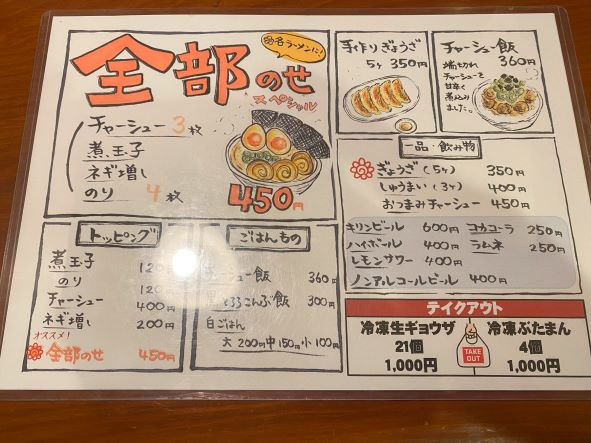 各名ラーメンに!
全部のせ
スペシャル
チャーシュー 3枚
煮玉子
ネギ増し
のり 4枚
450円
手作りぎょうざ
5ヶ 350円
チャーシュー飯
360円
端っきれ
チャーシューを
甘辛く
煮込み
ました。
一品・飲み物
ぎょうざ(5ヶ) 350円
しゅうまい(3ヶ) 400円
おつまみチャーシュー 450円
キリンビール 600円 コカコーラ 250円
ハイボール 400円 ラムネ 250円
レモンサワー 400円
ノンアルコールビール 400円
トッピング
煮玉子 120
のり 120
チャーシュー 400円
ネギ増し 200円
オススメ!
全部のせ 450円
ごはんもの
チャーシュー飯 360円
とろろこんぶ飯 300円
白ごはん
大 200円 中 150円 小 100円
テイクアウト
冷凍生ギョウザ
21個
1,000円
TAKE OUT
冷凍ぶたまん
4個
1,000円